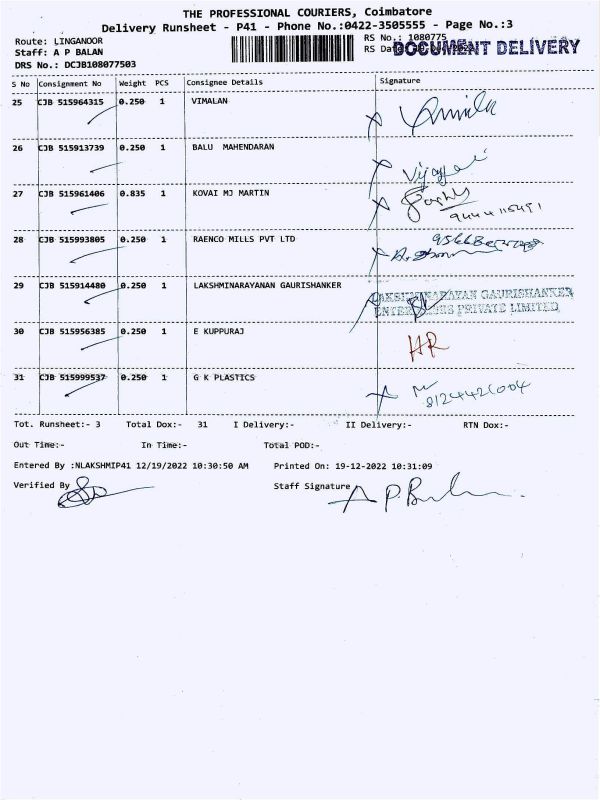 THE PROFESSIONAL COURIERS, Coimbatore
Delivery Runsheet - P41 - Phone No.:0422-3505555 - Page No.:3
Route: LINGANOOR
RS No.: 1080775
Staff: A P BALAN
RS Dat
DOCUMENT DELIVERY
DRS No.: DCJB108077503
S No Consignment No Weight PCS Consignee Details Signature
25 CJB 515964315 0.250 1 VIMALAN
26 CJB 515913739 0.250 1 BALU MAHENDARAN
27 CJB 515961406 0.835 1 KOVAI MJ MARTIN
9444115491
28 CJB 515993805 0.250 1 RAENCO MILLS PVT LTD
29 CJB 515914480 0.250 1 LAKSHMINARAYANAN GAURISHANKER
LAKSHMINARAYAN GAURISHANKER
PRIVATE LIMITED
30 CJB 515956385 0.250 1 E KUPPURAJ
HR
31 CJB 515999537 0.250 1 G K PLASTICS
8124421004
Tot. Runsheet:- 3 Total Dox:- 31 I Delivery:- II Delivery:- RTN Dox:-
Out Time:- In Time:- Total POD:-
Entered By :NLAKSHMIP41 12/19/2022 10:30:50 AM Printed On: 19-12-2022 10:31:09
Verified By Staff Signature